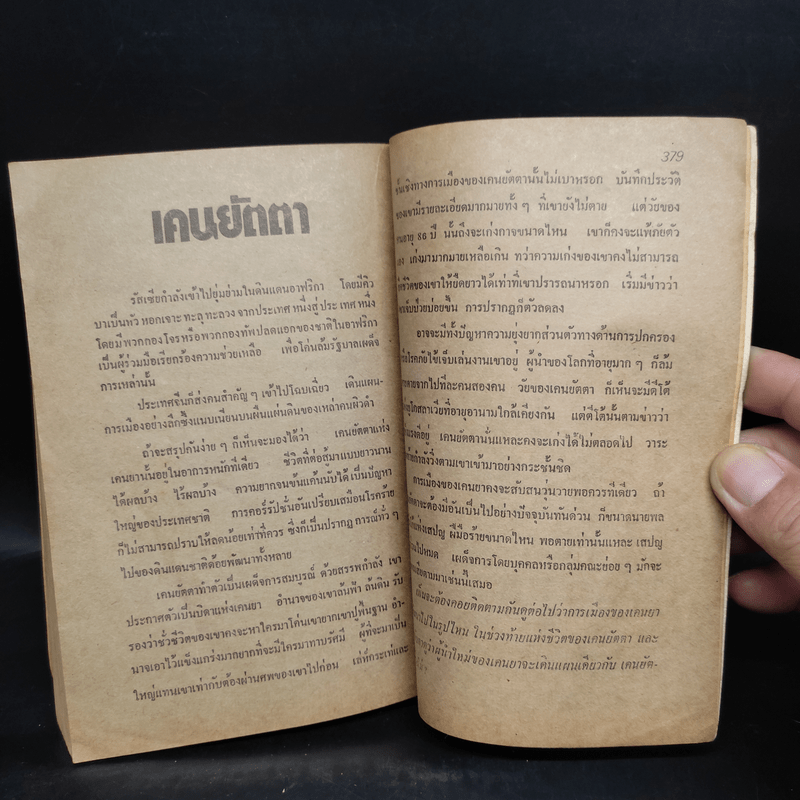 เคนยัตตา
รัสเซียกำลังเข้าไปยุ่มย่ามในดินแดนอาฟริกา โดยมีคิว
บาเป็นหัว หอกเจาะ ทะลุ ทะลวง จากประเทศ หนึ่งสู่ ประ เทศ หนึ่ง
โดยมี พวกกองโจรหรือพวกกองทัพปลดแอกของชาติในอาฟริกา
เป็นผู้ร่วมมือเรียกร้องความช่วยเหลือ เพื่อโค่นล้มรัฐบาลเผด็จ
การเหล่านั้น
ประเทศจีนก็ส่งคนสำคัญ ๆ เข้าไปโฉบเฉี่ยว เดินแผน-
การเมืองอย่างลึกซึ้งแนบเนียนบนผืนแผ่นดินของเหล่าคนผิวดำ
ถ้าจะสรุปกันง่าย ๆ ก็เห็นจะมองได้ว่า เคนยัตตาแห่ง
เคนยานั้นอยู่ในอาการหนักทีเดียว ชีวิตที่ต่อสู้มาแบบยาวนาน
ได้ผลบ้าง ไร้ผลบ้าง ความยากจนข้นแค้นนับได้เป็นปัญหา
ใหญ่ของประเทศชาติ การคอร์รัปชั่นอันเปรียบเสมือนโรคร้าย
ก็ไม่สามารถปราบให้ลดน้อยเท่าที่ควร ซึ่งก็เป็นปรากฏ การณ์ทั่ว ๆ
ไปของดินแดนชาติด้อยพัฒนาทั้งหลาย
เคนยัตตาทำตัวเป็นเผด็จการสมบูรณ์ ด้วยสรรพกำลัง เขา
ประกาศตัวเป็นบิดาแห่งเคนยา อำนาจของเขาล้นฟ้า ล้นดิน รับ
รองว่าชั่วชีวิตของเขาคงจะหาใครมาโค่นเขายากเขาปูพื้นฐาน อำ-
นาจเอาไว้แข็งแกร่งมากยากที่จะมีใครมาทาบรัศมี ผู้ที่จะมาเป็น
ใหญ่แทนเขาเท่ากับต้องผ่านศพของเขาไปก่อน เล่ห์กระเท่ห์และ
379
เชิงทางการเมืองของเคนยัตตานั้นไม่เบาหรอก บันทึกประวัติ
ของเขามีรายละเอียดมากมายทั้ง ๆ ที่เขายังไม่ตาย แต่วัยของ
อายุ 86 ปี นั้นถึงจะเก่งกาจขนาดไหน เขาก็คงจะแพ้ภัยตัว
เก่งมามากมายเหลือเกิน ทว่าความเก่งของเขาคงไม่สามารถ
ชีวิตของเขาให้ยืดยาวได้เท่าที่เขาปรารถนาหรอก เริ่มมีข่าวว่า
เจ็บป่วยบ่อยขึ้น การปรากฏก็ตัวลดลง
อาจจะมีทั้งปัญหาความยุ่งยากส่วนตัวทางด้านการปกครอง
โรคภัยไข้เจ็บเล่นงานเขาอยู่ ผู้นำของโลกที่อายุมาก ๆ ก็ล้ม
ตายจากไปทีละคนสองคน วัยของเคนยัตตา ก็เห็นจะมีตีโต้
โกสลาเวียที่อายุอานามใกล้เคียงกัน แต่ตีโต้นั้นตามข่าวว่า
แรงดีอยู่ เคนยัตตานั่นแหละคงจะเก่งได้ไม่ตลอดไป วาระ
กำลังวิ่งตามเขาเข้ามาอย่างกระชั้นชิด
การเมืองของเคนยาคงจะสับสนวุ่นวายพอควรทีเดียว ถ้า
จะต้องมีอันเป็นไปอย่างปัจจุบันทันด่วน ก็ขนาดนายพล
แห่งเสปญ ฝีมือร้ายขนาดไหน พอตายเท่านั้นแหละ เสปญ
ไปหมด เผด็จการโดยบุคคลหรือกลุ่มคณะย่อย ๆ มักจะ
ตามมาเช่นนี้เสมอ
จะต้องคอยติดตามกันดูต่อไปว่าการเมืองของเคนยา
ไปในรูปไหน ในช่วงท้ายแห่งชีวิตของเคนยัตตา และ
ว่าผู้นำใหม่ของเคนยาจะเดินแผนเดียวกับ เคนยัต-